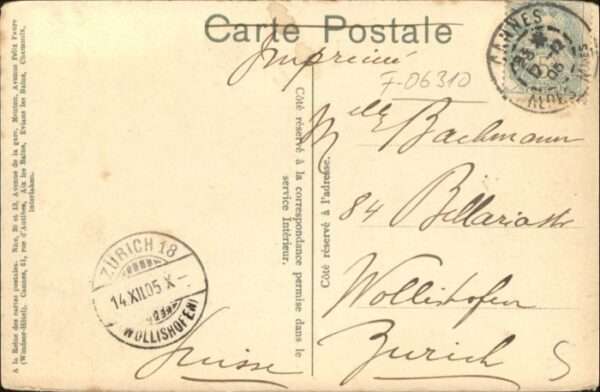 Carte Postale
Imprimé
F-06310
Mlle Bachmann
84 Bellariastr
Wollishofen
Zurich
Suisse
5
CANNES
ALPES
ZÜRICH 18
14.XII.05.X-
(WOLLISHOFEN)
Côté réservé à la correspondance permise dans le
service Intérieur.
Côté réservé à l'adresse.
A la Reine des cartes postales. Nice, 20 et 13, Avenue de la gare, Menton, Avenue Felix Faure
(Windsor-Hôtel). Cannes, 51, rue d'Antibes, Aix les Bains, Evians les Bains, Chamonix,
Interlaken.